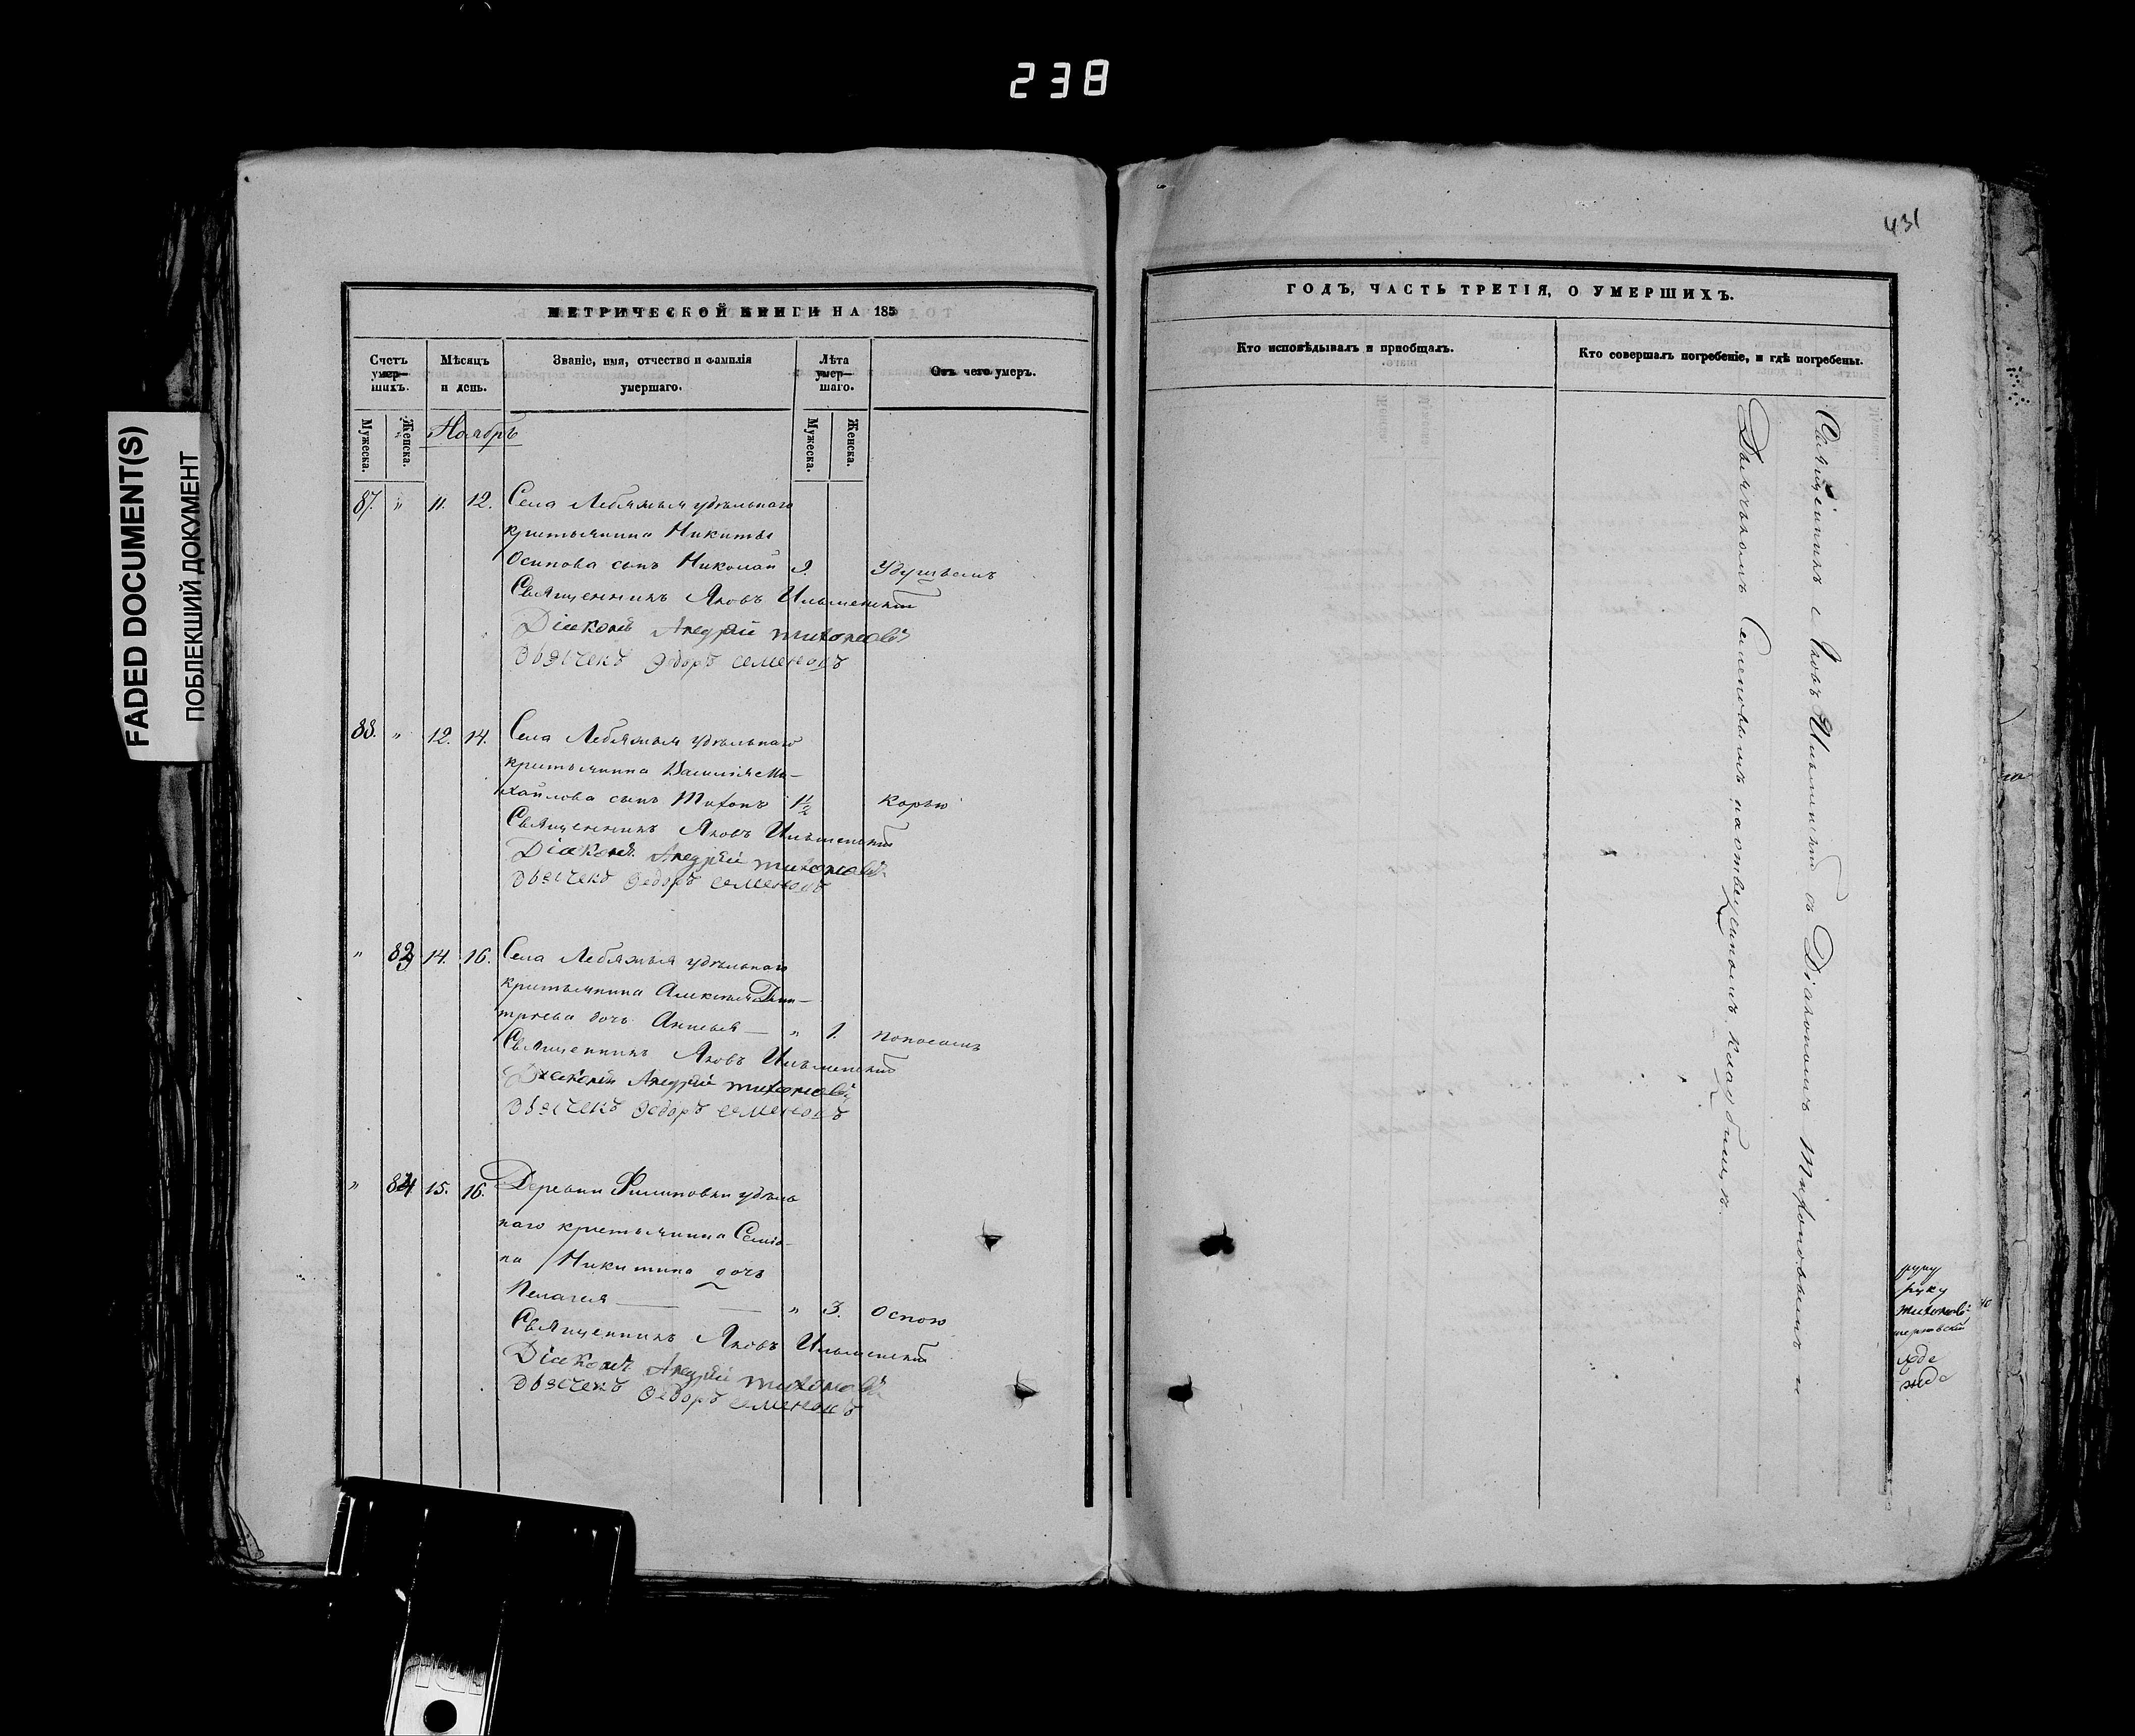 238
FADED DOCUMENT(S)
ПОБЛЕКШИЙ ДОКУМЕНТ
МЕТРИЧЕСКОЙ КНИГИ НА 185
Счетъ умер— шихъ.
Мѣсяцъ и день.
Званіе, имя, отчество и фамилія умершаго.
Лѣта умер— шаго.
Отъ чего умеръ.
Мужеска.
Женска.
Ноябрь
Мужеска.
Женска.
87. „ 11. 12. Села Лебяжья удѣльнаго
крестьянина Никиты
Осипова сынъ Николай 9. Удушьемъ
Священникъ Яковъ Ильменскій
Діаконъ Андрей Тихоновъ
Дьячекъ Федоръ Семеновъ
88. „ 12. 14. Села Лебяжья удѣльнаго
крестьянина Василія Ми—
хайлова сынъ Тихонъ 1½ Корью
Священникъ Яковъ Ильменскій
Діаконъ Андрей Тихоновъ
Дьячекъ Федоръ Семеновъ
„ 83 14. 16. Села Лебяжья удѣльнаго
крестьянина Алексѣя Дми—
тріева дочь Анисья — „ 1. поносомъ
Священникъ Яковъ Ильменскій
Діаконъ Андрей Тихоновъ
Дьячекъ Федоръ Семеновъ
„ 84 15. 16. Деревни Филиповки удѣль
наго крестьянина Семіо—
на Никитина дочь
Пелагея — — „ 3. Оспою
Священникъ Яковъ Ильменскій
Діаконъ Андрей Тихоновъ
Дьячекъ Федоръ Семеновъ
431
ГОДЪ, ЧАСТЬ ТРЕТІЯ, О УМЕРШИХЪ.
Кто исповѣдывалъ и пріобщалъ.
Кто совершалъ погребеніе, и гдѣ погребены.
Священникъ Яковъ Ильменскій съ Діакономъ Тихоновымъ и
Дьячкомъ Семеновымъ на отведенномъ кладбищѣ.
руку
руку
Тихоновъ